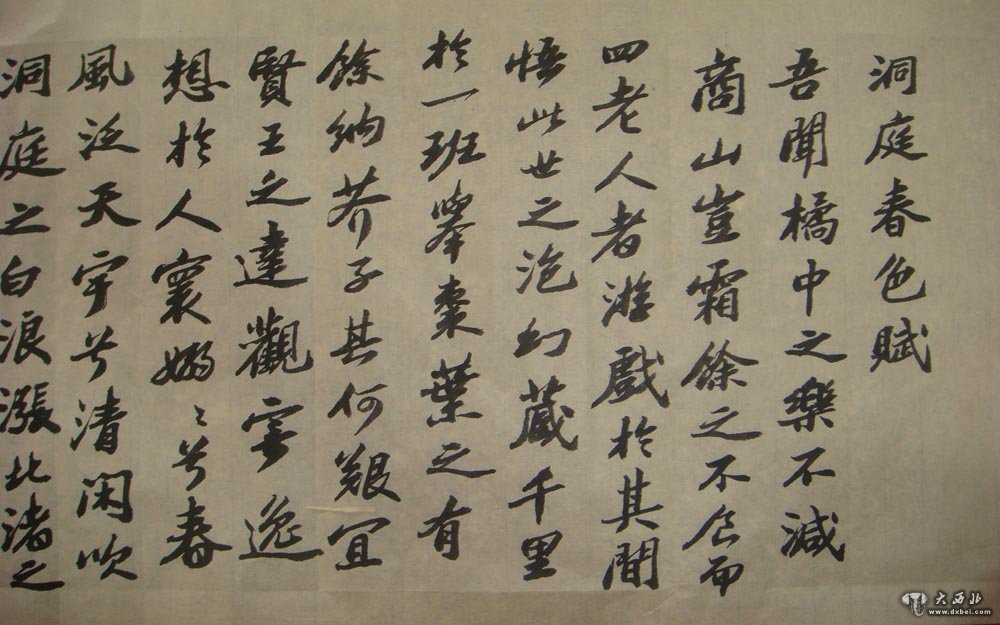 洞庭春色賦
吾聞橘中之樂不減
商山豈霜餘之不食而
四老人者游戲於其間
悟此世之泡幻藏千里
於一班舉棗葉之有
餘納芥子其何艱宜
賢王之達觀寄逸
想於人寰嫋々兮春
風泛天宇兮清閑吹
洞庭之白浪漲北渚之
大西北
www.dxbei.com